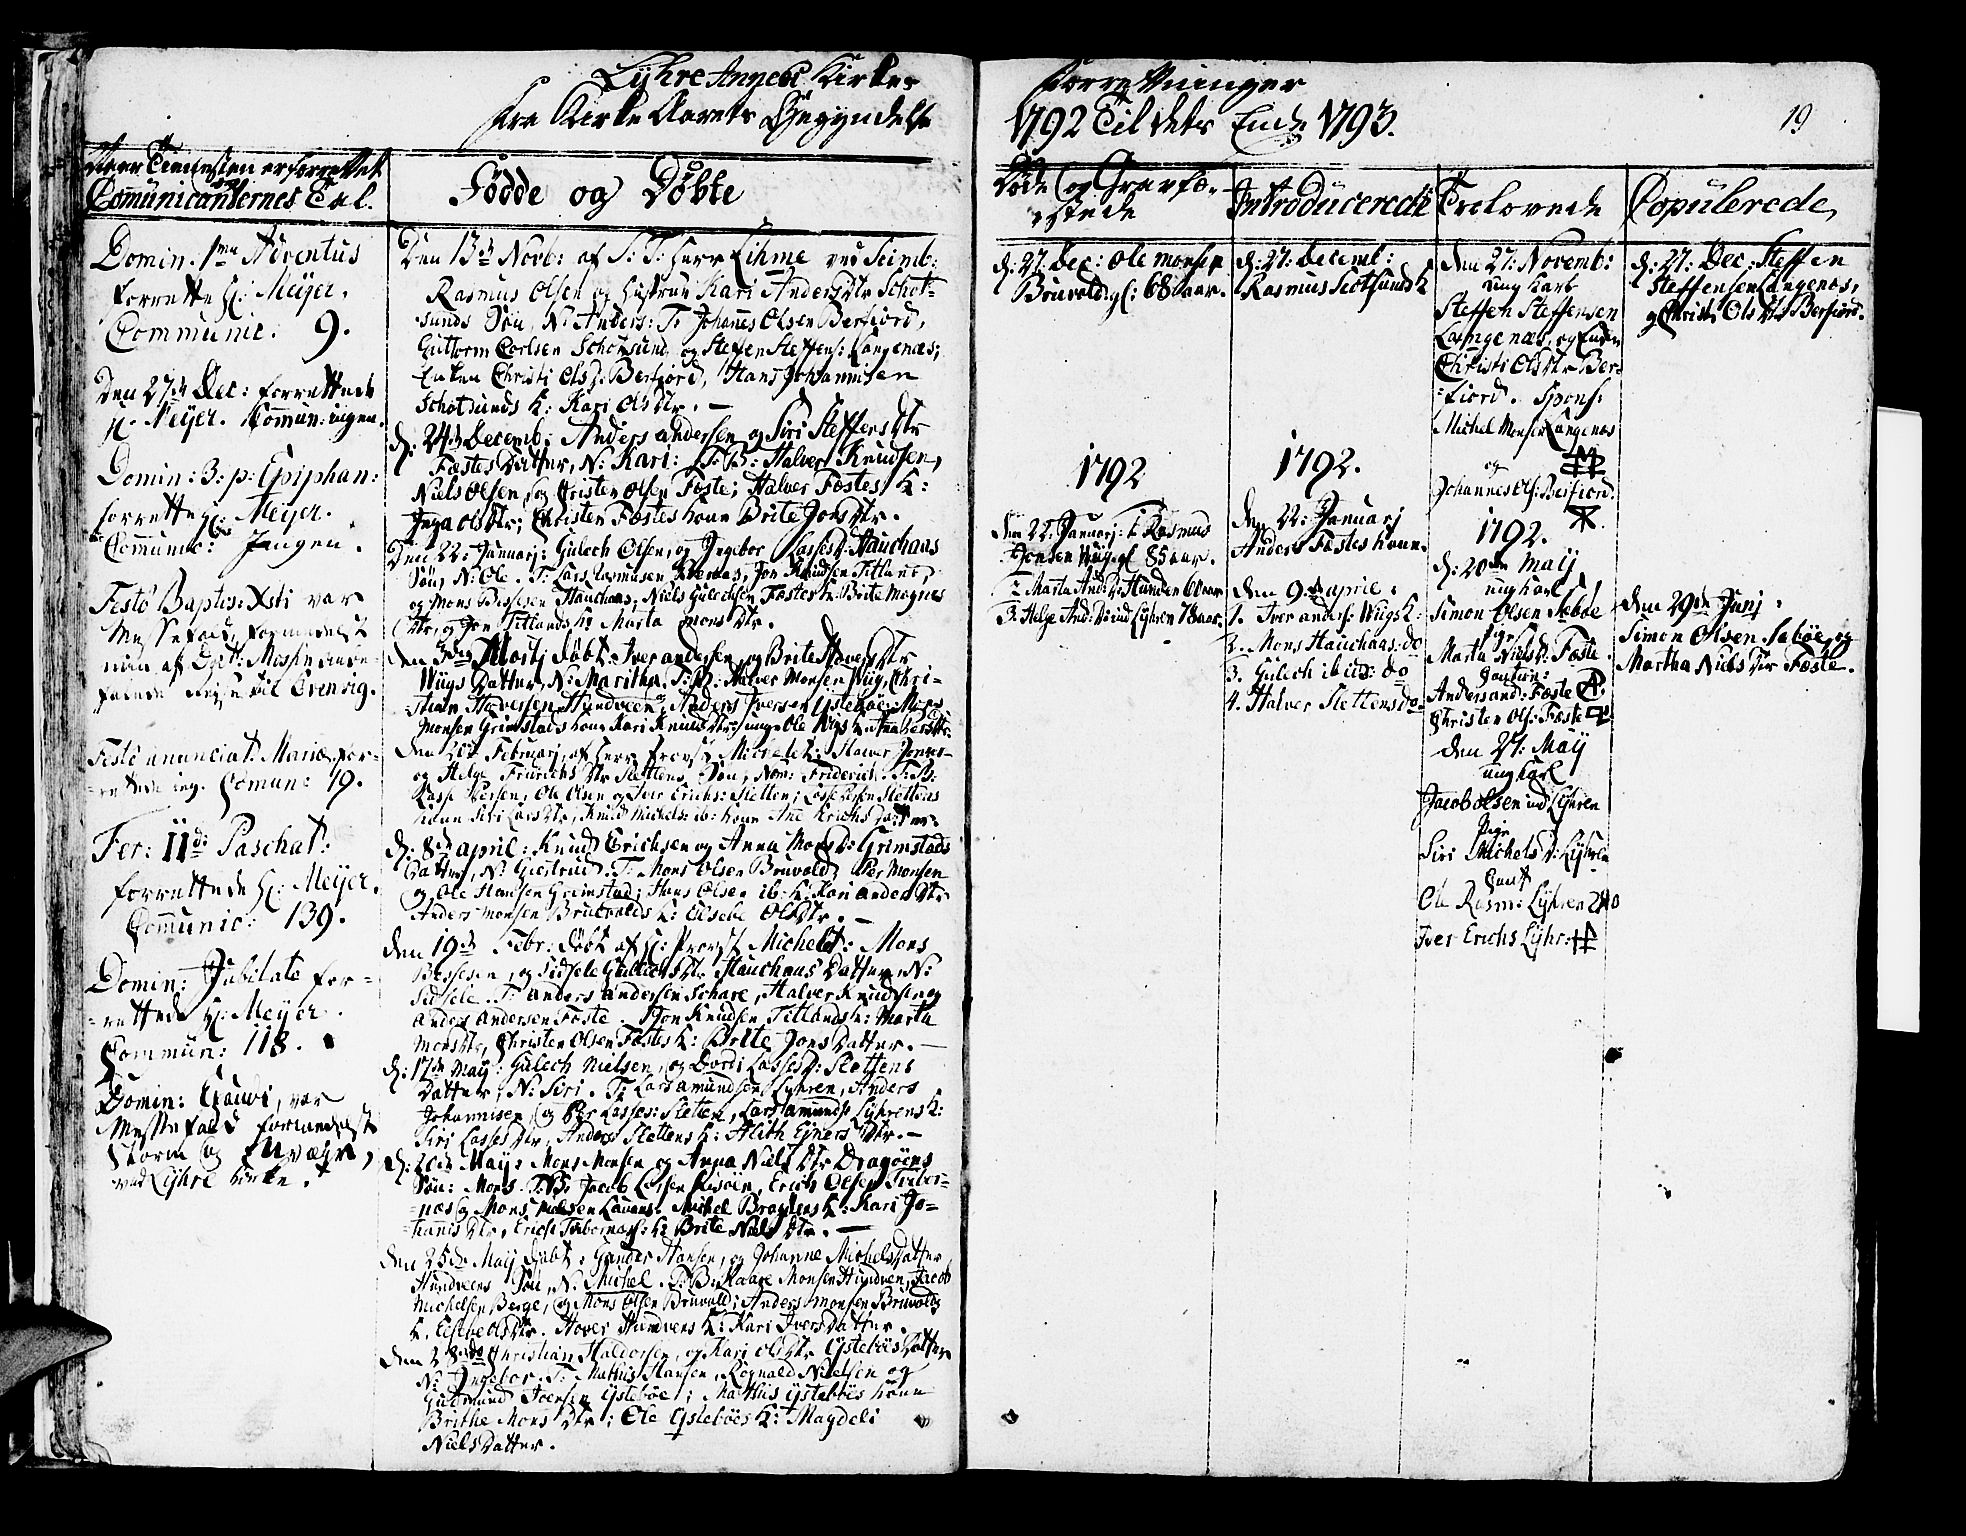 Lyhre Annexes Kirkes
fra Kirke Aarets Begyndelse
Naar Tienesten er forrettet
og
Communicanternes Tal.
Domin. 1ma Adventus
forrettede H: Meyer.
Communic: 9.
Den 27de Dec: forrettede
H. Meyer. Commun: ingen.
Domin: 3: p: Epiphan:
forrettede H: Meyer.
Communic: Jngen.
Festô Baptis: Xsti var
Messefald, formedelst
Festô anunciat: Mariæ, for-
rettede ieg. Comun: 19.
Fer: IIdi Paschat:
forrettede H: Meyer.
Communic: 139.
Domin: Jubilate for-
-rettede H: Meyer.
Commun: 118.
Domin: Exaudi, var
Messefald formedelst
Storm og Uveyr,
ved Lyhre Kirke.
Fødde og Døbte
Den 13de Novb: af S: T: Herr Lihme ved Seimb:
Rasmus Olsen og hustrue Kari Andersdtr Schot-
sunds Søn, N: Anders: T: Johanes Olsen Berfiord,
Guttorm Carlsen Schotsund, og Steffen Steffens: Langenæs;
Enken Christi Olsd: Berfiord, Hans Johannisen
Schotsunds K: Kari Olsdtr. —
d: 24de Decemb: Anders andersen og Siri Steffensdtr
Fæstes Datter, N: Kari: T: B: Halver Knudsen,
Niels Olsen, og Cristen Olsen Fæste; Halver Fæstes K:
Inga Olsdtr; Christen Fæstes kone Brite Jonsdtr.
Den 22: Januarj: Gulech Olsen, og Ingebor Lassesd: Hauchaas
Søn, N: Ole. T: Lars Rasmusen Quernes, Jon Knudsen Titland,
og Mons Bessesen Hauchaas, Niels Gulechsen Fæstes K: Brite Magnes
dtr, og Jon Titlands K: Marta Monsdtr.
den 3die Martj døbt Iver andersen og Brite Haversdtr
Wiigs Datter, N: Maritha. T: B: Halver Monsen Wiig, Chri-
stian Haversen Hundveen, og Anders Iversen Ystebøe: Mons
Monsen Grimstads kone Kari Knudsdtr:
den 20de Februarj, af Herr Provst Michelet: Haver Joners-
og Helge Fridrichsdtr Slettens Søn, Nom: Friderich. T: B:
Lasse Persen, Ole Olsen og Iver Erichs: Sletten; Lasse Persen Slettens
kone Siri Larsdtr, Knud Michels: ib: kone Ane Erichs Datter.
d: 8de april: Knud Erichsen og Anna Monsd: Grimstads
Datter, N: Giertrud. T: Mons Olsen Bruvold, Per Monsen
og Ole Hansen Grimstad; Hans Olsen ib: K: Kari Andersdtr
Anders Monsen Bruvolds K: Elsebe Olsdtr. —
den 19de Febr: døbt af H: Provst Michelet: Mons
Bessesen, og Sidsele Gulechsdtr Hauchaas Datter, N:
Sidsele. T: Anders Andersen Schare, Halver Knudsen og
Anders Andersen Fæste. Jon Knudsen Titlands K: Marta
Monsdtr, Christen Olsen Fæstes K: Britte Jons Datter. —
d: 17de Maij: Gulech Nielsen, og Dordi Lassesd: Slettens
Datter, N: Siri. T: Lars amundsen Lyhren, Anders
Johannisen, og Per Lasses: Sletten, Lars amunds: Lyhrens K:
Siri Lassesdtr, Anders Slettens K: Alith Ejners dtr. —
d: 20de Maij: Mons Monsen og Anna Nielsdtr Dragøens
Søn: Mons. T: B: Jacob Larsen Risøen, Erich Olsen Træber-
næs og Mons Nielsen Lauvaas. Michel Bragstens K: Kari Jo-
hannisdtr, Erich Træbernæss: K: Brite Nielsdtr. —
den 25de Maij døbt: Gunder Hansen, og Johanne Michels Datter
Hundveens Søn, N: Michel. T: B: Kaare Monsen Hundven, Jacob
Michelsen Berge, og Mons Olsen Bruvold; Anders Monsen Bruvolds
K: Elsebe Olsdtr. Haver Hundvens K: Kari Ivers Datter.
den 28de Christian Haldorsen, og Kari Olsdtr Ystebøes Datter
N: Ingebor. T: Mathis Hansen, Rognald Nielsen og
Gudmund Joensen Ystebøe; Mathis Ystebøes kone
Brithe Mons dtr; Ole Ystebøes K: Magdeli
Niels Datter.
Forretninger
1792 Til dets Ende 1793.
19
Døde og Gravfæ-
stede
d: 27 Dec: Ole Monsen
Bruvold gl: 68 aar.
1792
den 22. Januarj: 1 Rasmus
Jensen Wiig gl. 85 aar.
2 Marta And: D: Hunden 60 aar
3. Helge And: D: ind Lyhren 78 aar.
Introducerede
d: 27: Decemb:
Rasmus Scotsunds K
1792.
den 22: Januarj
Anders Fæstes kone.
den 9de aprile:
1. Iver anders: Wiigs K:
2. Mons Hauchaas: do
3. Gulech ibid: do
4. Halver Slettens do.
Trolovede
den 27: Novemb:
ung Karl
Steffen Steffensen
Langenæs, og Enken
Christi Olsdtr Ber-
fiord. Spons:
Michel Monsen Langenæs
og
Johannes Ols: Berfiord.
1792.
d: 20de Maij
ung karl
Simon Olsen Sæbøe
Pige
Marta Nielsd: Fæste
Cautun:
Anders and: Fæste
Christen Ols: Fæste
den 27: Maij
ung Karl
Jacob olsen ind Lyhren
Pige
Siri Michelsd: Lyhren
Caut
Ole Rasm: Lyhren
Iver Erichs Lyhr:
Copulerede
d: 27: Dec: Steffen
Steffensen Langenæs,
og Christi Olsdtr Berfiord.
den 29de Junj:
Simon Olsen Sæbøe, og
Martha Nielsdtr Fæste.